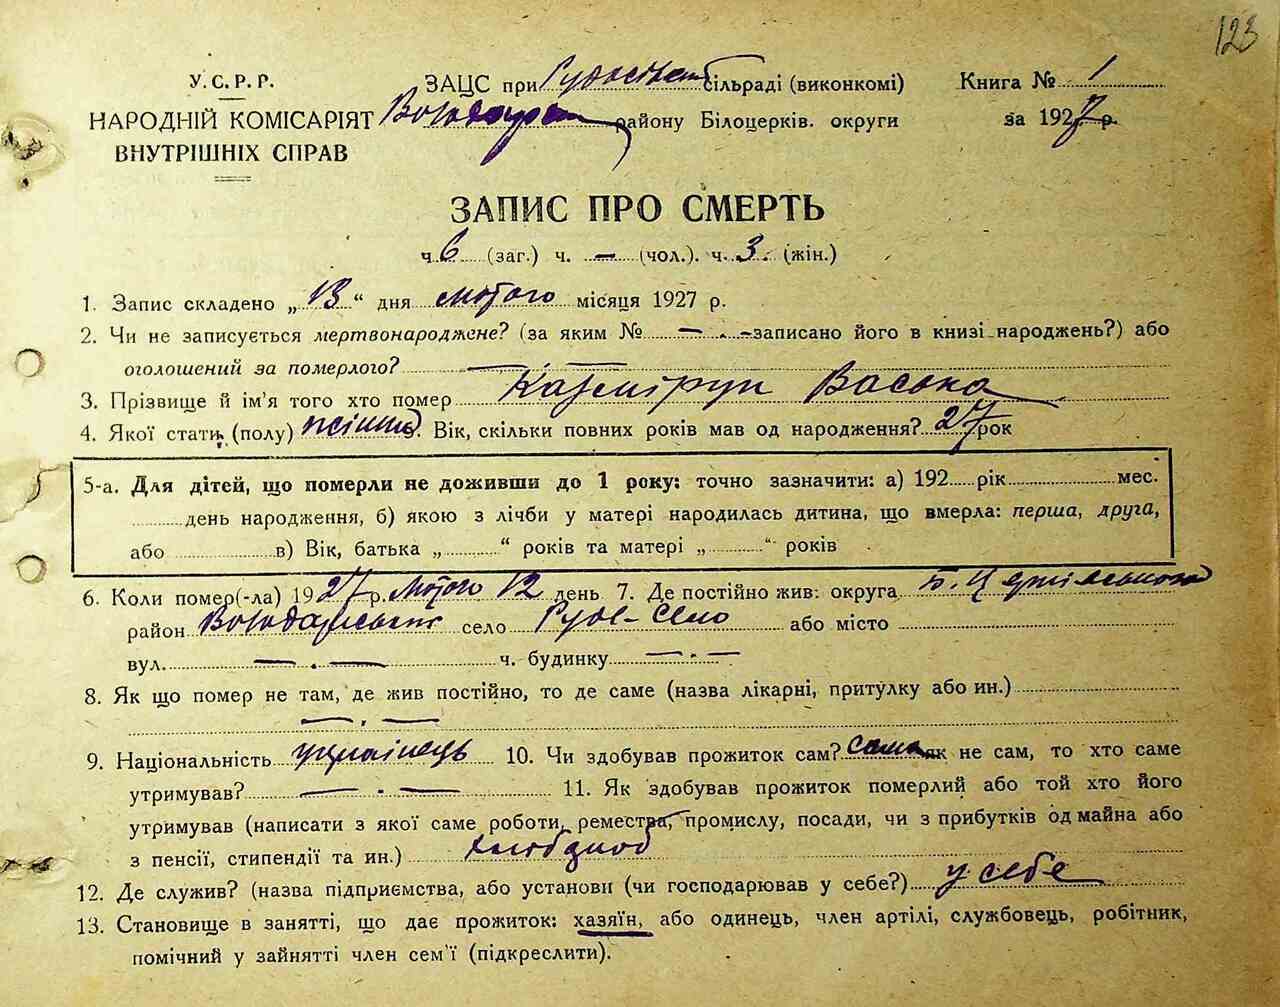 123
У.С.Р.Р.
НАРОДНІЙ КОМІСАРІЯТ
ВНУТРІШНІХ СПРАВ
ЗАЦС при сільраді (виконкомі)
району Білоцерків. округи
Книга № 1
за 1927 р.
ЗАПИС ПРО СМЕРТЬ
ч. 6 (заг.) ч. — (чол.). ч. 3. (жін.)
1. Запис складено „13“ дня лютого місяця 1927 р.
2. Чи не записується мертвонароджене? (за яким № — . - записано його в книзі народжень?) або
оголошений за померлого? — —
3. Прізвище й ім'я того хто помер
4. Якої стати (полу) Вік, скільки повних років мав од народження? 27 рок
5-а. Для дітей, що померли не доживши до 1 року: точно зазначити: а) 192 рік мес.
день народження, б) якою з лічби у матері народилась дитина, що вмерла: перша, друга,
або в) Вік, батька „ “ років та матері „ “ років
6. Коли помер(-ла) 1927 р. лютого 12 день 7. Де постійно жив: округа
район село Руде-Село або місто
вул. — . — ч. будинку — . —
8. Як що помер не там, де жив постійно, то де саме (назва лікарні, притулку або ин.)
— . —
9. Національність українець 10. Чи здобував прожиток сам? сама як не сам, то хто саме
утримував? — . — 11. Як здобував прожиток померлий або той хто його
утримував (написати з якої саме роботи, ремества, промислу, посади, чи з прибутків од майна або
з пенсії, стипендії та ин.) хлебороб
12. Де служив? (назва підприємства, або установи (чи господарював у себе?) у себе
13. Становище в занятті, що дає прожиток: хазяїн, або одинець, член артілі, службовець, робітник,
помічний у зайнятті член сем'ї (підкреслити).